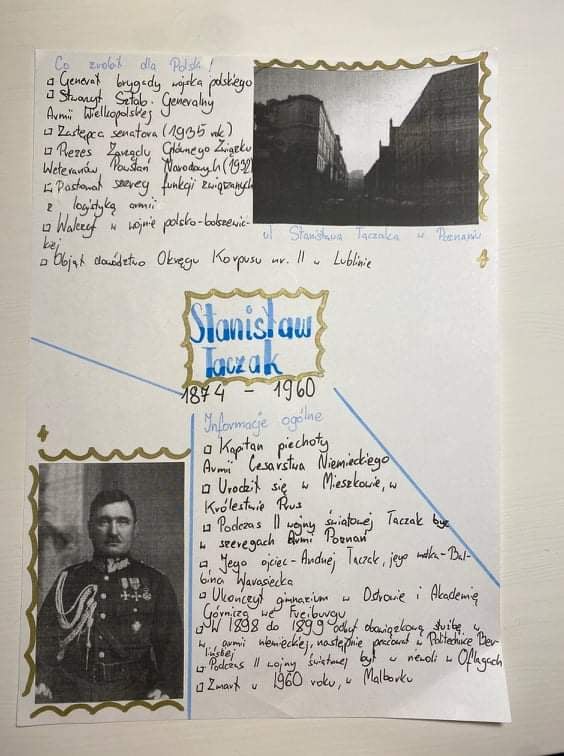 Co zrobił dla Polski!
□ Generał brygady wojska polskiego
□ Stworzył Sztab Generalny
Armii Wielkopolskiej
□ Zastępca senatora (1935 rok)
□ Prezes Zarządu Głównego Związku
Weteranów Powstań Narodowych (1932)
□ Piastował szereg funkcji związanych
z logistyką armii
□ Walczył w wojnie polsko-bolszewic-
kiej
□ Objął dowództwo Okręgu Korpusu nr. II w Lublinie
ul Stanisława Taczaka w Poznaniu
Stanisław
Taczak
1874 - 1960
Informacje ogólne
□ Kapitan piechoty
Armii Cesarstwa Niemieckiego
□ Urodził się w Mieszkowie, w
Królestwie Prus
□ Podczas II wojny światowej Taczak był
w szeregach Armi Poznań
□ Jego ojciec - Andrzej Taczak, jego matka - Bal-
bina Wawasiecka
□ Ukończył gimnazjum w Ostrowie i Akademię
Górniczą we Freiburgu
□ W 1898 do 1899 odbył obowiązkową służbę w
w armii niemieckiej, następnie pracował w Politechnice Ber-
lińskiej
□ Podczas II wojny światowej był w niewoli w Oflagach
□ Zmarł w 1960 roku, w Malborku